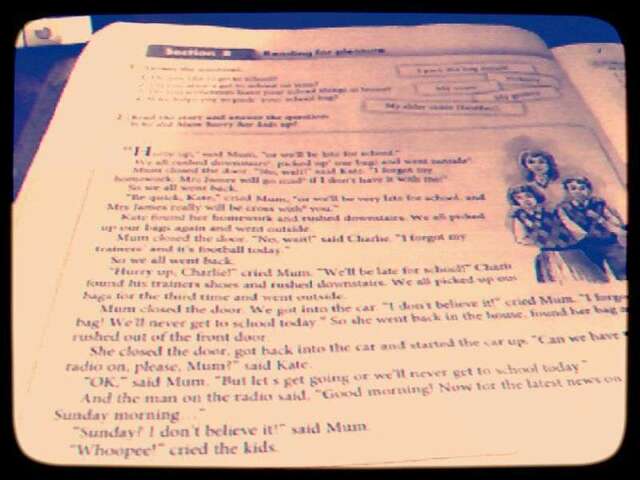 Section 8 Reading for pleasure
2 Read the story and answer the question.
"Hurry up," said Mum, "or we'll be late for school."
We all rushed downstairs, picked up our bags and went outside.
Mum closed the door. "No, wait!" said Kate. "I forgot my
homework. Mrs James will go mad if I don't have it with me!"
So we all went back.
"Be quick, Kate," cried Mum, "or we'll be very late for school, and
Mrs James really will be cross with you."
Kate found her homework and rushed downstairs. We all picked
up our bags again and went outside.
Mum closed the door. "No, wait!" said Charlie. "I forgot my
trainers and it's football today."
So we all went back.
"Hurry up, Charlie!" cried Mum. "We'll be late for school!" Charli
found his trainers shoes and rushed downstairs. We all picked up our
bags for the third time and went outside.
Mum closed the door. We got into the car. "I don't believe it!" cried Mum. "I forgo
bag! We'll never get to school today." So she went back in the house, found her bag a
rushed out of the front door.
She closed the door, got back into the car and started the car up. "Can we have
radio on, please, Mum?" said Kate.
"OK," said Mum. "But let s get going or we'll never get to school today"
And the man on the radio said, "Good morning! Now for the latest news on
Sunday morning..."
"Sunday? I don't believe it!" said Mum.
"Whoopee!" cried the kids.